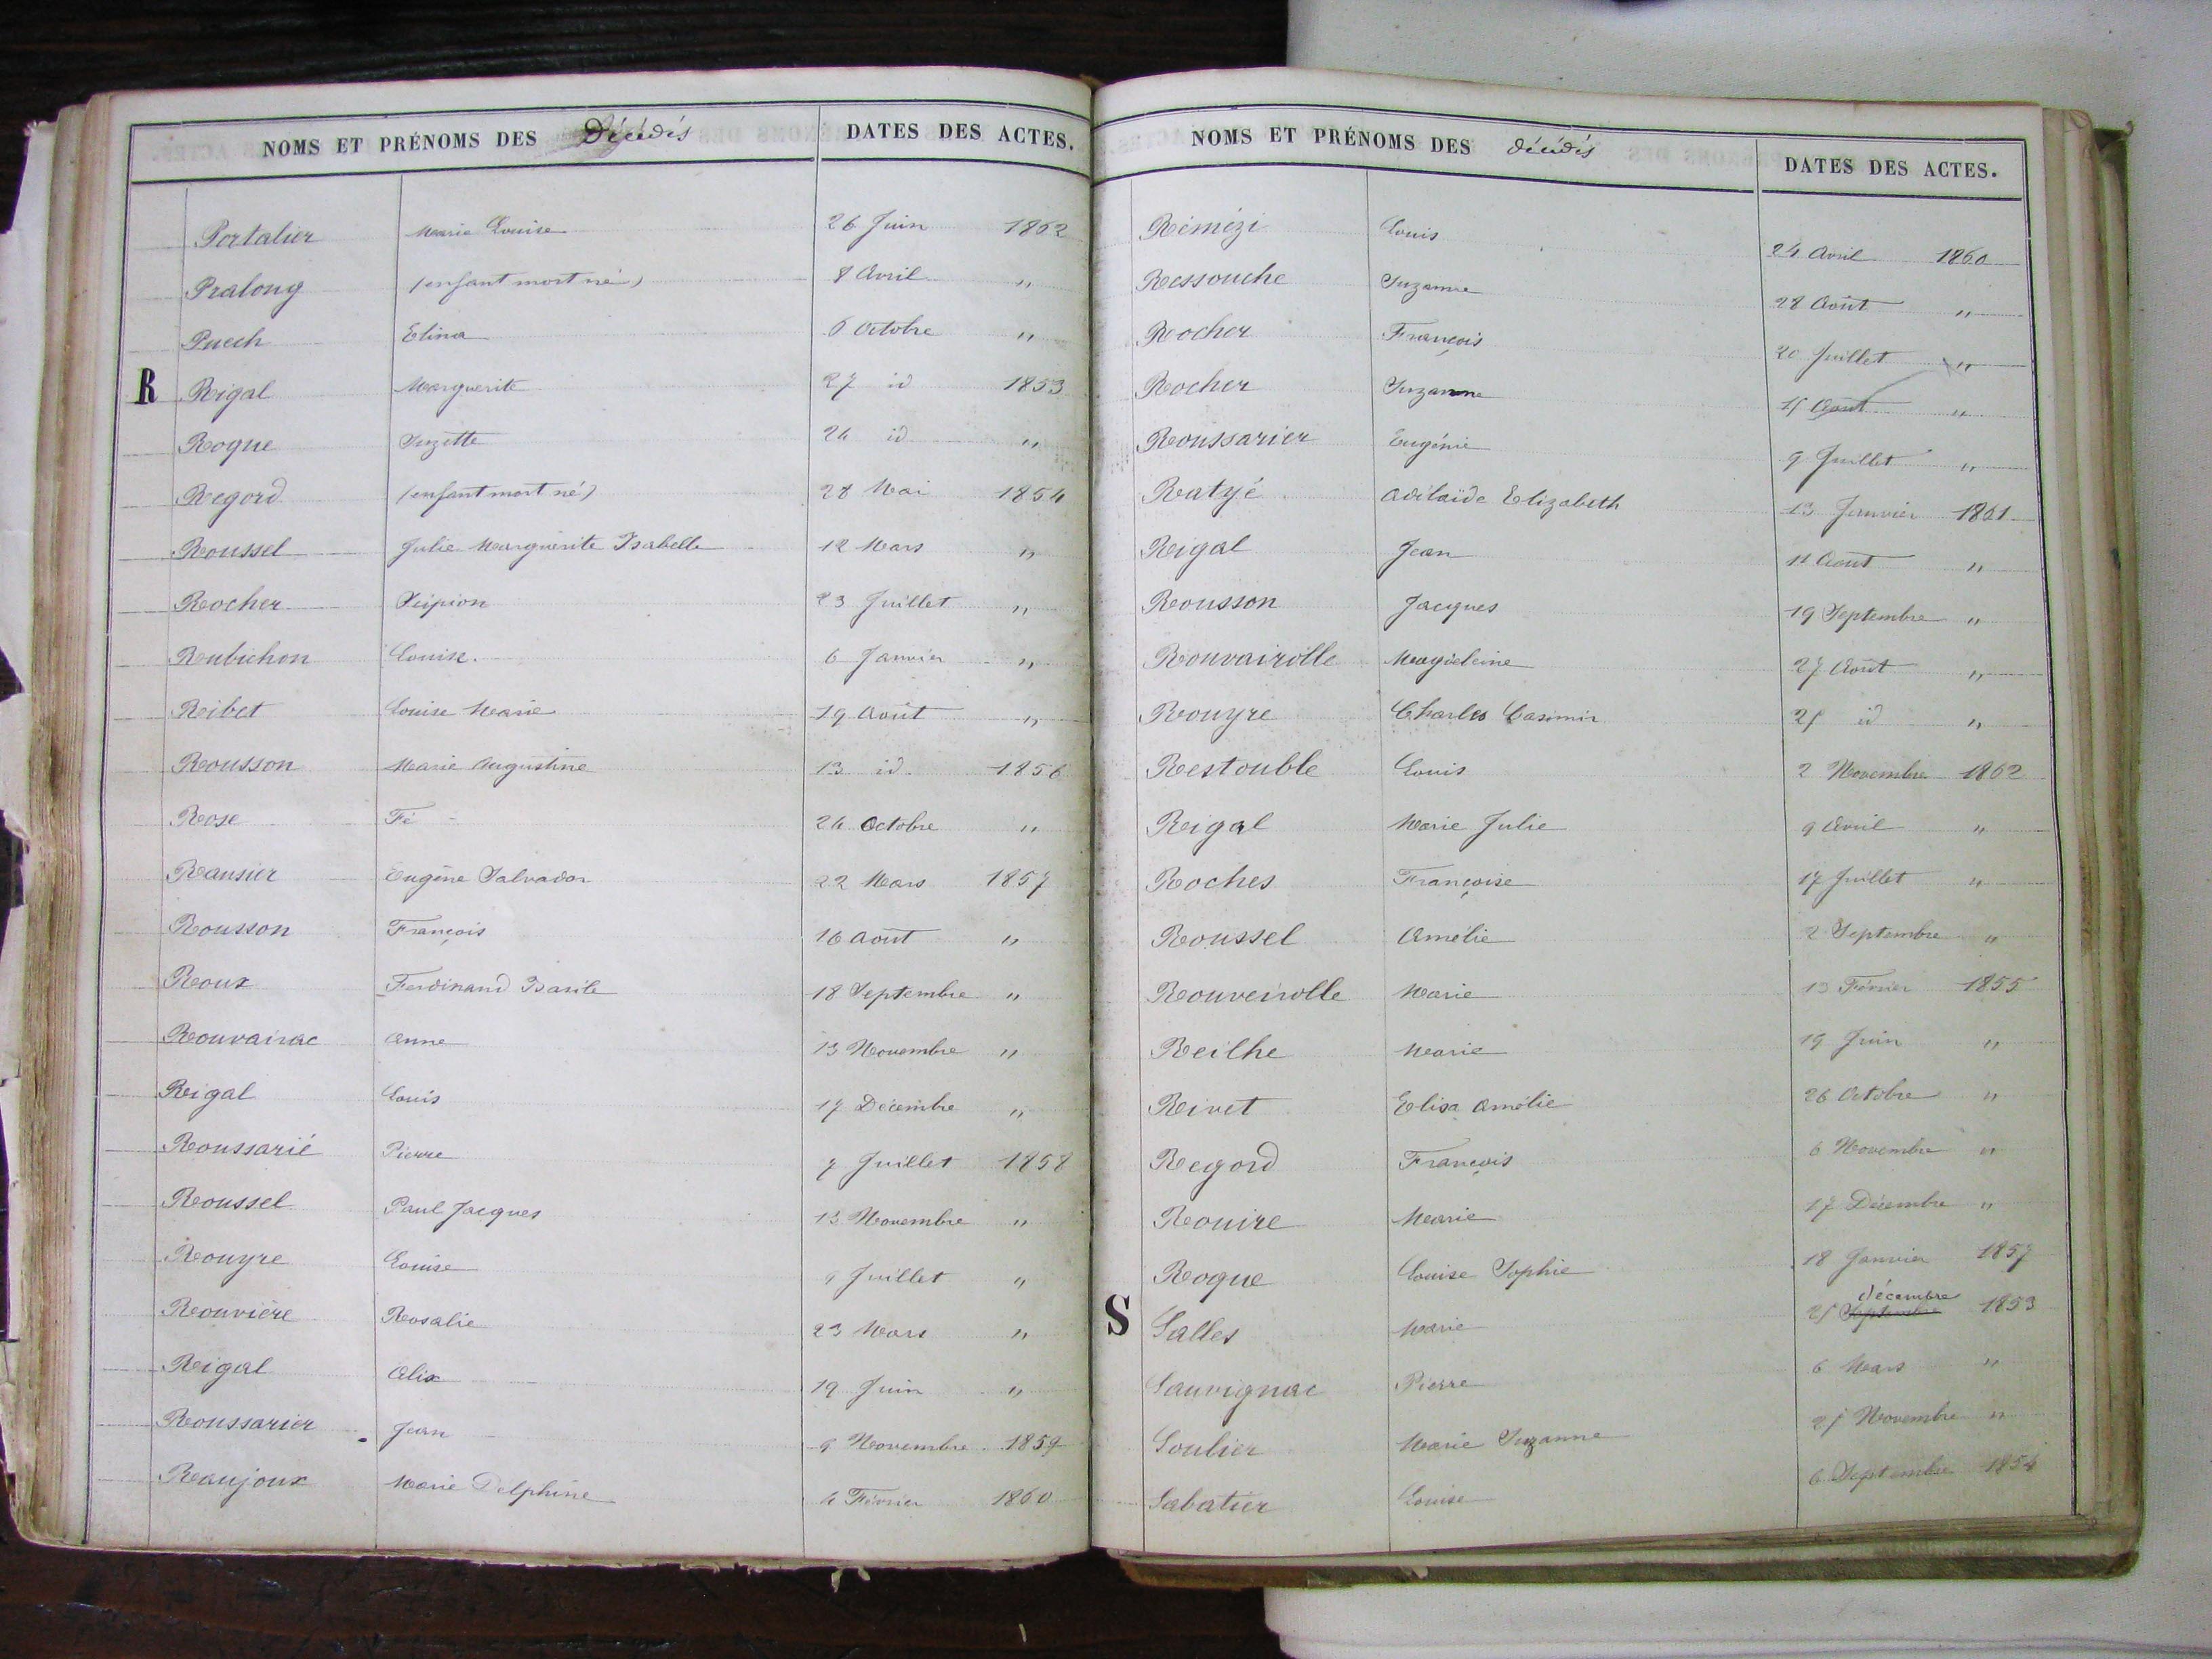 NOMS ET PRÉNOMS DES Décédés DATES DES ACTES.
Portalier Marie Louise 26 Juin 1862
Pralong (enfant mort né) 8 Avril "
Puech Elina 6 Octobre "
R Rigal Marguerite 27 id 1853
Roque Suzette 24 id "
Regord (enfant mort né) 28 Mai 1854
Roussel Julie Marguerite Isabelle 12 Mars "
Rocher Scipion 23 Juillet "
Rubichon Louise. 6 Janvier "
Ribet Louise Marie 19 Août "
Rousson Marie Augustine 13 id 1856
Rose Fé 24 Octobre "
Rausier Eugène Salvador 22 Mars 1857
Rousson François 16 Août "
Roux Ferdinand Basile 18 Septembre "
Rouvairac Anne 13 Novembre "
Rigal Louis 17 Décembre "
Roussarié Pierre 7 Juillet 1858
Roussel Paul Jacques 13 Novembre "
Rouyre Louise 9 Juillet "
Rouvière Rosalie 23 Mars "
Rigal Alix 19 Juin "
Roussarier Jean 9 Novembre 1859
Raujoux Marie Delphine 4 Février 1860
NOMS ET PRÉNOMS DES décédés DATES DES ACTES.
Rémézi Louis 24 Avril 1860
Ressouche Suzanne 28 Août "
Rocher François 20 Juillet "
Rocher Suzanne 15 Août "
Roussarier Eugénie 9 Juillet "
Ratyé Adélaïde Elizabeth 13 Janvier 1861
Rigal Jean 11 Août "
Rousson Jacques 19 Septembre "
Rouvairolle Magdeleine 27 Août "
Rouyre Charles Casimir 25 id "
Restouble Louis 2 Novembre 1862
Rigal Marie Julie 9 Avril "
Roches Françoise 17 Juillet "
Roussel Amélie 2 Septembre "
Rouveirolle Marie 13 Février 1855
Reilhe Marie 19 Juin "
Rivet Elisa Amélie 26 Octobre "
Regord François 6 Novembre "
Rouire Marie 17 Décembre "
Roque Louise Sophie 18 Janvier 1857
décembre
S Salles Marie 25 Septembre 1853
Sauvignac Pierre 6 Mars "
Soulier Marie Suzanne 25 Novembre "
Sabatier Louise 6 Septembre 1854